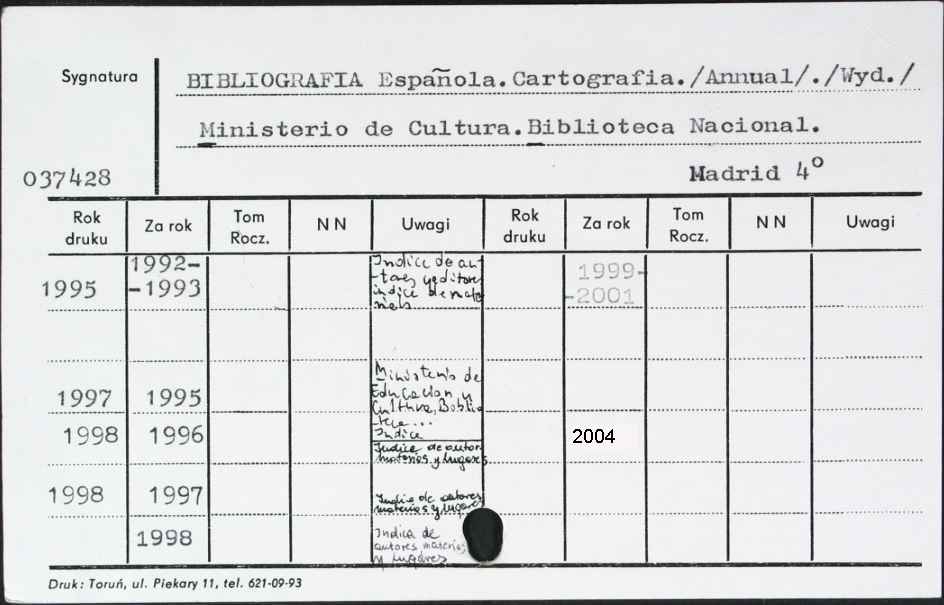 Sygnatura
BIBLIOGRAFIA Española.Cartografia./Annual/./Wyd./
Ministerio de Cultura.Biblioteca Nacional.
037428
Madrid 4º
Rok druku Za rok Tom Rocz. N N Uwagi Rok druku Za rok Tom Rocz. N N Uwagi
1992-
-1993
1995
Indice de au-
-tores y editores
indice de mate
1999-
-2001
Ministerio de
Educacion y
Cultura, Biblio
-teca...
1997 1995
Indice
1998 1996
2004
Indice de autor
materias y lugares
1998 1997
Indice de autores
materias y lugares
1998
Indice de
autores materias
y lugares
Druk: Toruń, ul. Piekary 11, tel. 621-09-93